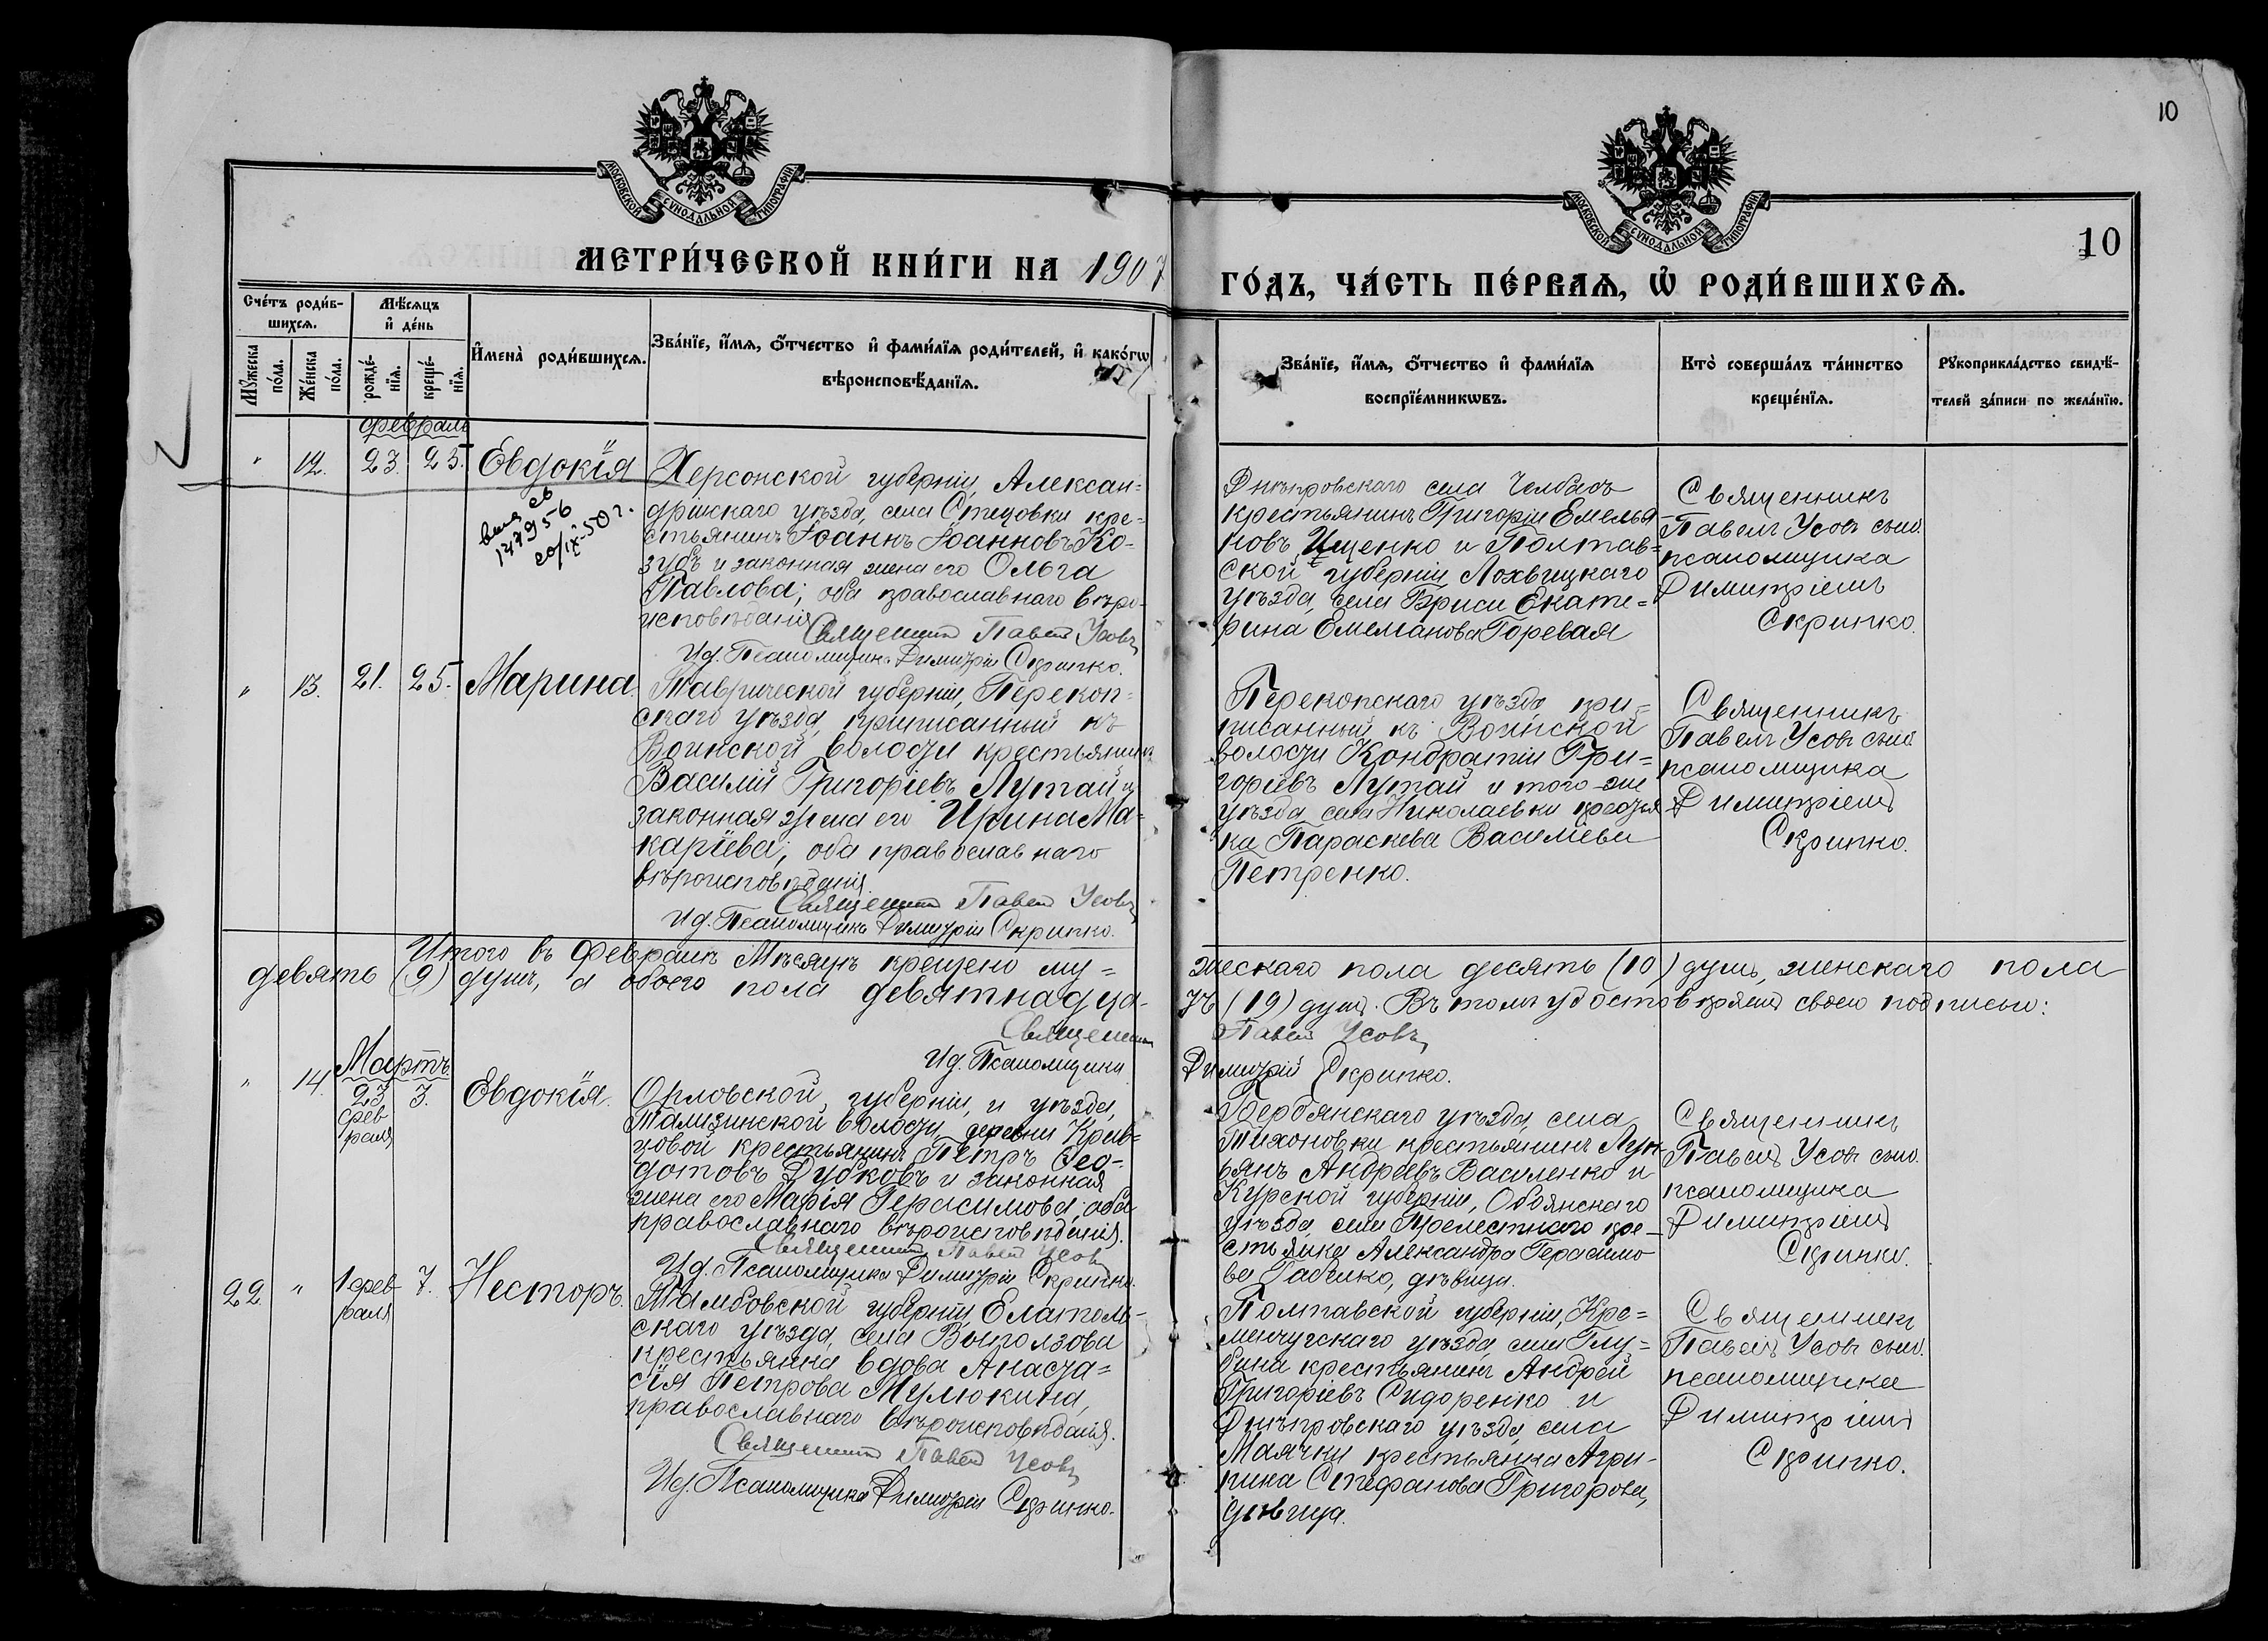 10
МОСКОВСКОЙ СѴНОДАЛЬНОЙ ТИПОГРАФІИ
МОСКОВСКОЙ СѴНОДАЛЬНОЙ ТИПОГРАФІИ
10
МЕТРИ́ЧЕСКОЙ КНИ́ГИ НА 1907
ГО́ДЪ, ЧА́СТЬ ПЕ́РВАѦ, Ѡ҆ РОДИ́ВШИХСѦ.
Сче́тъ роди́в-
шихсѧ.
Мꙋ́жеска по́ла.
Же́нска по́ла.
Мѣ́сѧцъ
и҆ де́нь
рожде́-
нїѧ.
креще́-
нїѧ.
И҆мена̀ роди́вшихсѧ.
Зва́нїе, и҆́мѧ, ѻ҆́тчество и҆ фами́лїѧ роди́телей, и҆ како́гѡ
вѣроисповѣ́данїѧ.
Зва́нїе, и҆́мѧ, ѻ҆́тчество и҆ фами́лїѧ
воспрїе́мникѡвъ.
Кто̀ соверша́лъ та́инство
креще́нїѧ.
Рꙋкоприкла́дство свидѣ́-
телей за́писи по жела́нїю.
Февраль
" 12. 23. 25. Евдокія
20/IX-50 г.
Херсонской губерніи, Алексан=
дрійскаго уѣзда, села Стецовки кре=
стьянинъ Іоаннъ Іоанновъ Ко=
зубъ и законная жена его Ольга
Павлова; оба православнаго вѣро-
исповѣданія
Священникъ Павелъ Усовъ
Ид. Псаломщика Димитрій Скрипко.
Днѣпровскаго села Челбасъ
крестьянинъ Григорій Емелья
новъ Ищенко и Полтав=
ской губерніи Лохвицкаго
уѣзда, села Бриси Екате=
рина Емельянова Горевая
Священникъ
Павелъ Усовъ съ и.д.
псаломщика
Димитріемъ
Скрипко.
" 13. 21. 25. Марина.
Таврической губерніи, Перекоп=
скаго уѣзда, приписанный къ
Воинской волости крестьянинъ
Василій Григоріевъ Лутай и
законная жена его Ирина Ма=
каріева; оба православнаго
вѣроисповѣданія.
Священникъ Павелъ Усовъ
Ид. Псаломщика Димитрій Скрипко.
Перекопскаго уѣзда при=
писанный къ Воинской
волости Кондратій Гри=
горіевъ Лутай и того-же
уѣзда села Николаевки крестья
ка Параскева Василіева
Петренко.
Священникъ
Павелъ Усовъ съ и.д.
псаломщика
Димитріемъ
Скрипко.
Итого въ Февралѣ Мѣсяцѣ крещено му=
жескаго пола десять (10) душъ, женскаго пола
девять (9) душъ, а обоего пола девятнадца-
ть (19) душъ. Въ томъ удостовѣряемъ своею подписью:
Священникъ Павелъ Усовъ
Ид. Псаломщика Димитрій Скрипко.
Мартъ
" 14. 23 фев
раля 3. Евдокія.
Орловской губерніи, и уѣзда,
Тализинской волости, деревни Крив=
цовой крестьянинъ Петръ Ѳео-
дотовъ Дубковъ и законная
жена его Марія Герасимова; оба
православнаго вѣроисповѣданія.
Священникъ Павелъ Усовъ
Ид. Псаломщика Димитрій Скрипко.
Бердянскаго уѣзда, села
Тихоновки крестьянинъ Лук
ьянъ Андреевъ Василенко и
Курской губерніи, Обоянскаго
уѣзда, села Прелестнаго кре=
стьянка Александра Герасимо
ва Бабенко, дѣвица.
Священникъ
Павелъ Усовъ съ и.д.
псаломщика
Димитріемъ
Скрипко.
22. " 1 фев
раля 7. Несторъ.
Тамбовской губерніи, Елатом-
скаго уѣзда, села Выползова
крестьянка вдова Анаста=
сія Петрова Мулюкина,
православнаго вѣроисповѣданія.
Священникъ Павелъ Усовъ
Ид. Псаломщика Димитрій Скрипко.
Полтавской губерніи, Кре=
менчугскаго уѣзда, села Глу=
бина крестьянинъ Андрей
Григоріевъ Сидоренко и
Днѣпровскаго уѣзда, села
Маячки крестьянка Агри-
пина Стефанова Григорова,
дѣвица.
Священникъ
Павелъ Усовъ съ и.д.
псаломщика
Димитріемъ
Скрипко.